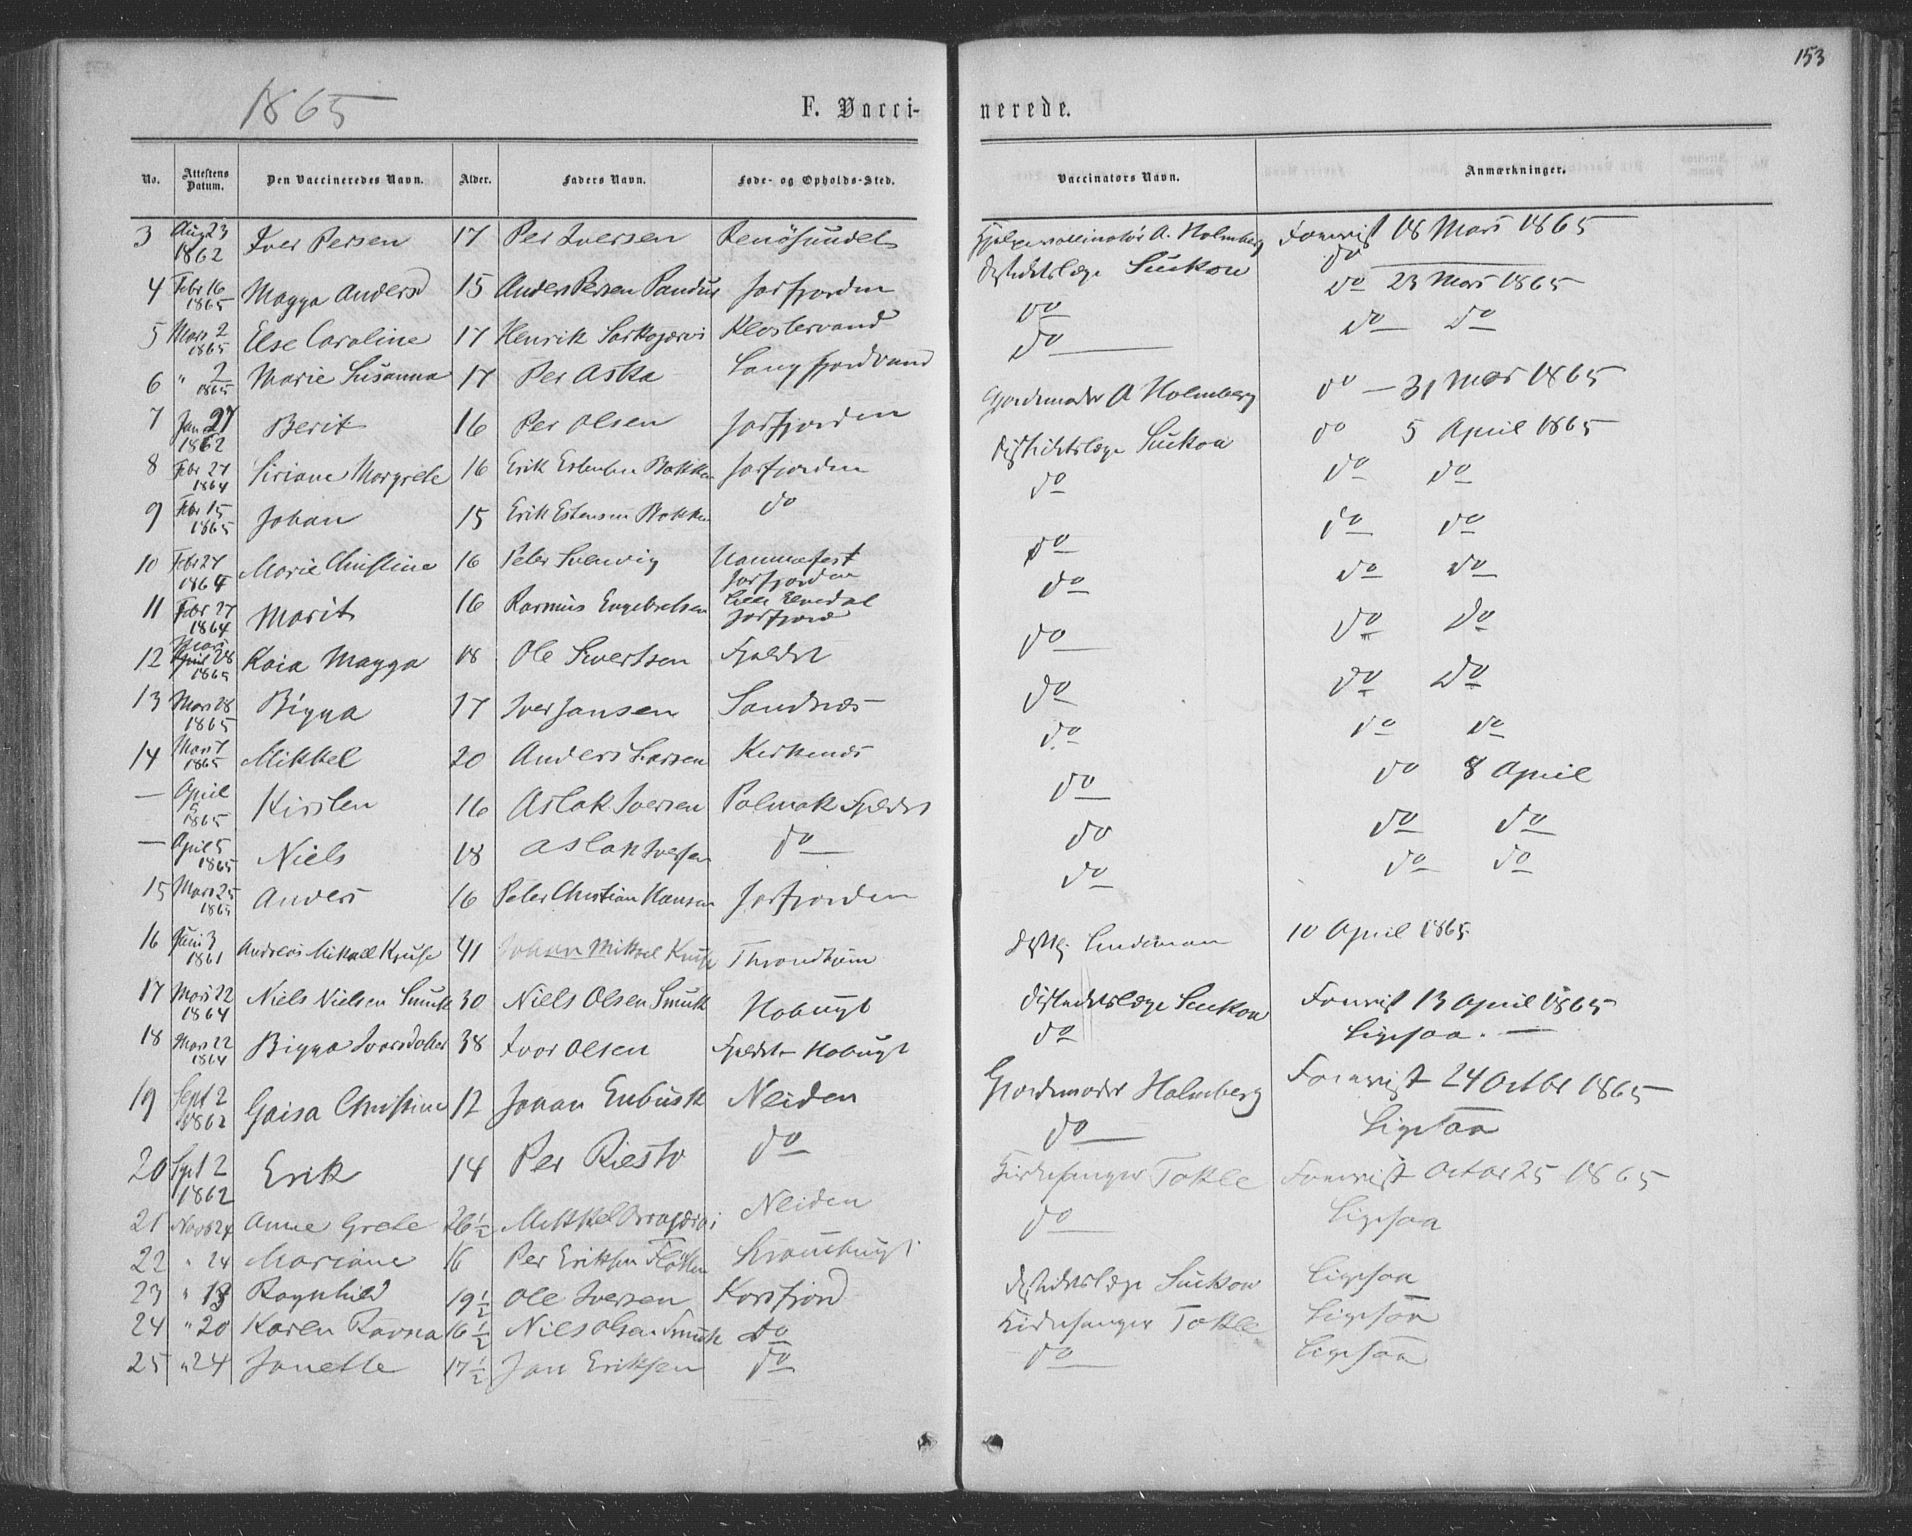 153
1865
F. Vacci- nerede.
No. Attestens Datum. Den Vaccineredes Navn. Alder. Faders Navn. Føde- og Opholds-Sted. Vaccinators Navn. Anmærkninger.
3 Aug 23 1862 Iver Persen 17 Per Iversen Renösundet Hjelpevaccinatör A. Holmberg Forevist 18 Mars 1865
4 Febr 16 1865 Magga Andersd 15 Anders Persen Distriktslæge Suckow do 23 Mars 1865
Jarfjorden
5 Mars 2 1865 Else Caroline 17 Henrik Klostervand do do do
6 " 2 1865 Marie Susanna 17 Per Aska Langfjordvand do
7 Jan 27 1862 Berit 16 Per Olsen Jarfjorden Gjordemoder A Holmberg do — 31 Mars 1865
8 Febr 27 1864 Siriane Margrete 16 Erik Estensen Bakken Jarfjorden Distriktslæge Suckow do 5 April 1865
9 Febr 15 1865 Johan 15 Erik Estensen Bakken do do do do
10 Febr 27 1864 Marie Christine 16 Peter Hammerfest Jarfjorden do do do
11 Febr 27 1864 Marit 16 Rasmus Engebretsen Lille Elvedal Jarfjord do do do
12 Mars 28 1865 Kaia Magga 18 Ole Sivertsen Fjeldet do do do
13 Mars 28 1865 Bigga 17 Iver Jansen Sandnæs do do do
14 Mars 7 1865 Mikkel 20 Anders Larsen Kirkenæs do do do
— April 5 1865 Kirsten 16 Aslak Iversen Polmak Fjeldet do do 8 April
— April 5 1865 Niels 18 Aslak Iversen do do do do
15 Mars 25 1865 Anders 16 Peter Christian Hansen Jarfjorden do do do
16 Juni 3 1861 Andreas Mikael Kruse 41 Johan Mikael Kruse Throndhjem Lindeman 10 April 1865
17 Mars 22 1864 Niels Nielsen Smuk 30 Niels Olsen Smuk Hobugt Distriktslæge Suckow Forevist 13 April 1865
18 Mars 22 1864 Bigga Ivarsdatter 38 Ivar Olsen Fjeldet – Hobugt do Ligesaa. —
19 Sept 2 1862 Gaisa Christine 12 Johan Enbusk Neiden Gjordemoder Holmberg Forevist 24 Octbr 1865
20 Sept 2 1862 Erik 14 Per Riesto do do Ligesaa
21 Novb 24 Anne Grete 26½ Mikkel Neiden Kirkesanger Tokle Forevist Octbr 25 1865
22 " 24 Mariane 16 Per Eriksen do Ligesaa
23 " 18 Ragnhild 19½ Ole Iversen Korsfjord Distriktslæge Suckow Ligesaa
24 " 20 Karen Ravna 16½ Niels Olsen Smuk do Kirkesanger Tokle Ligesaa
25 " 24 Janette 17½ Jan Eriksen do do Ligesaa